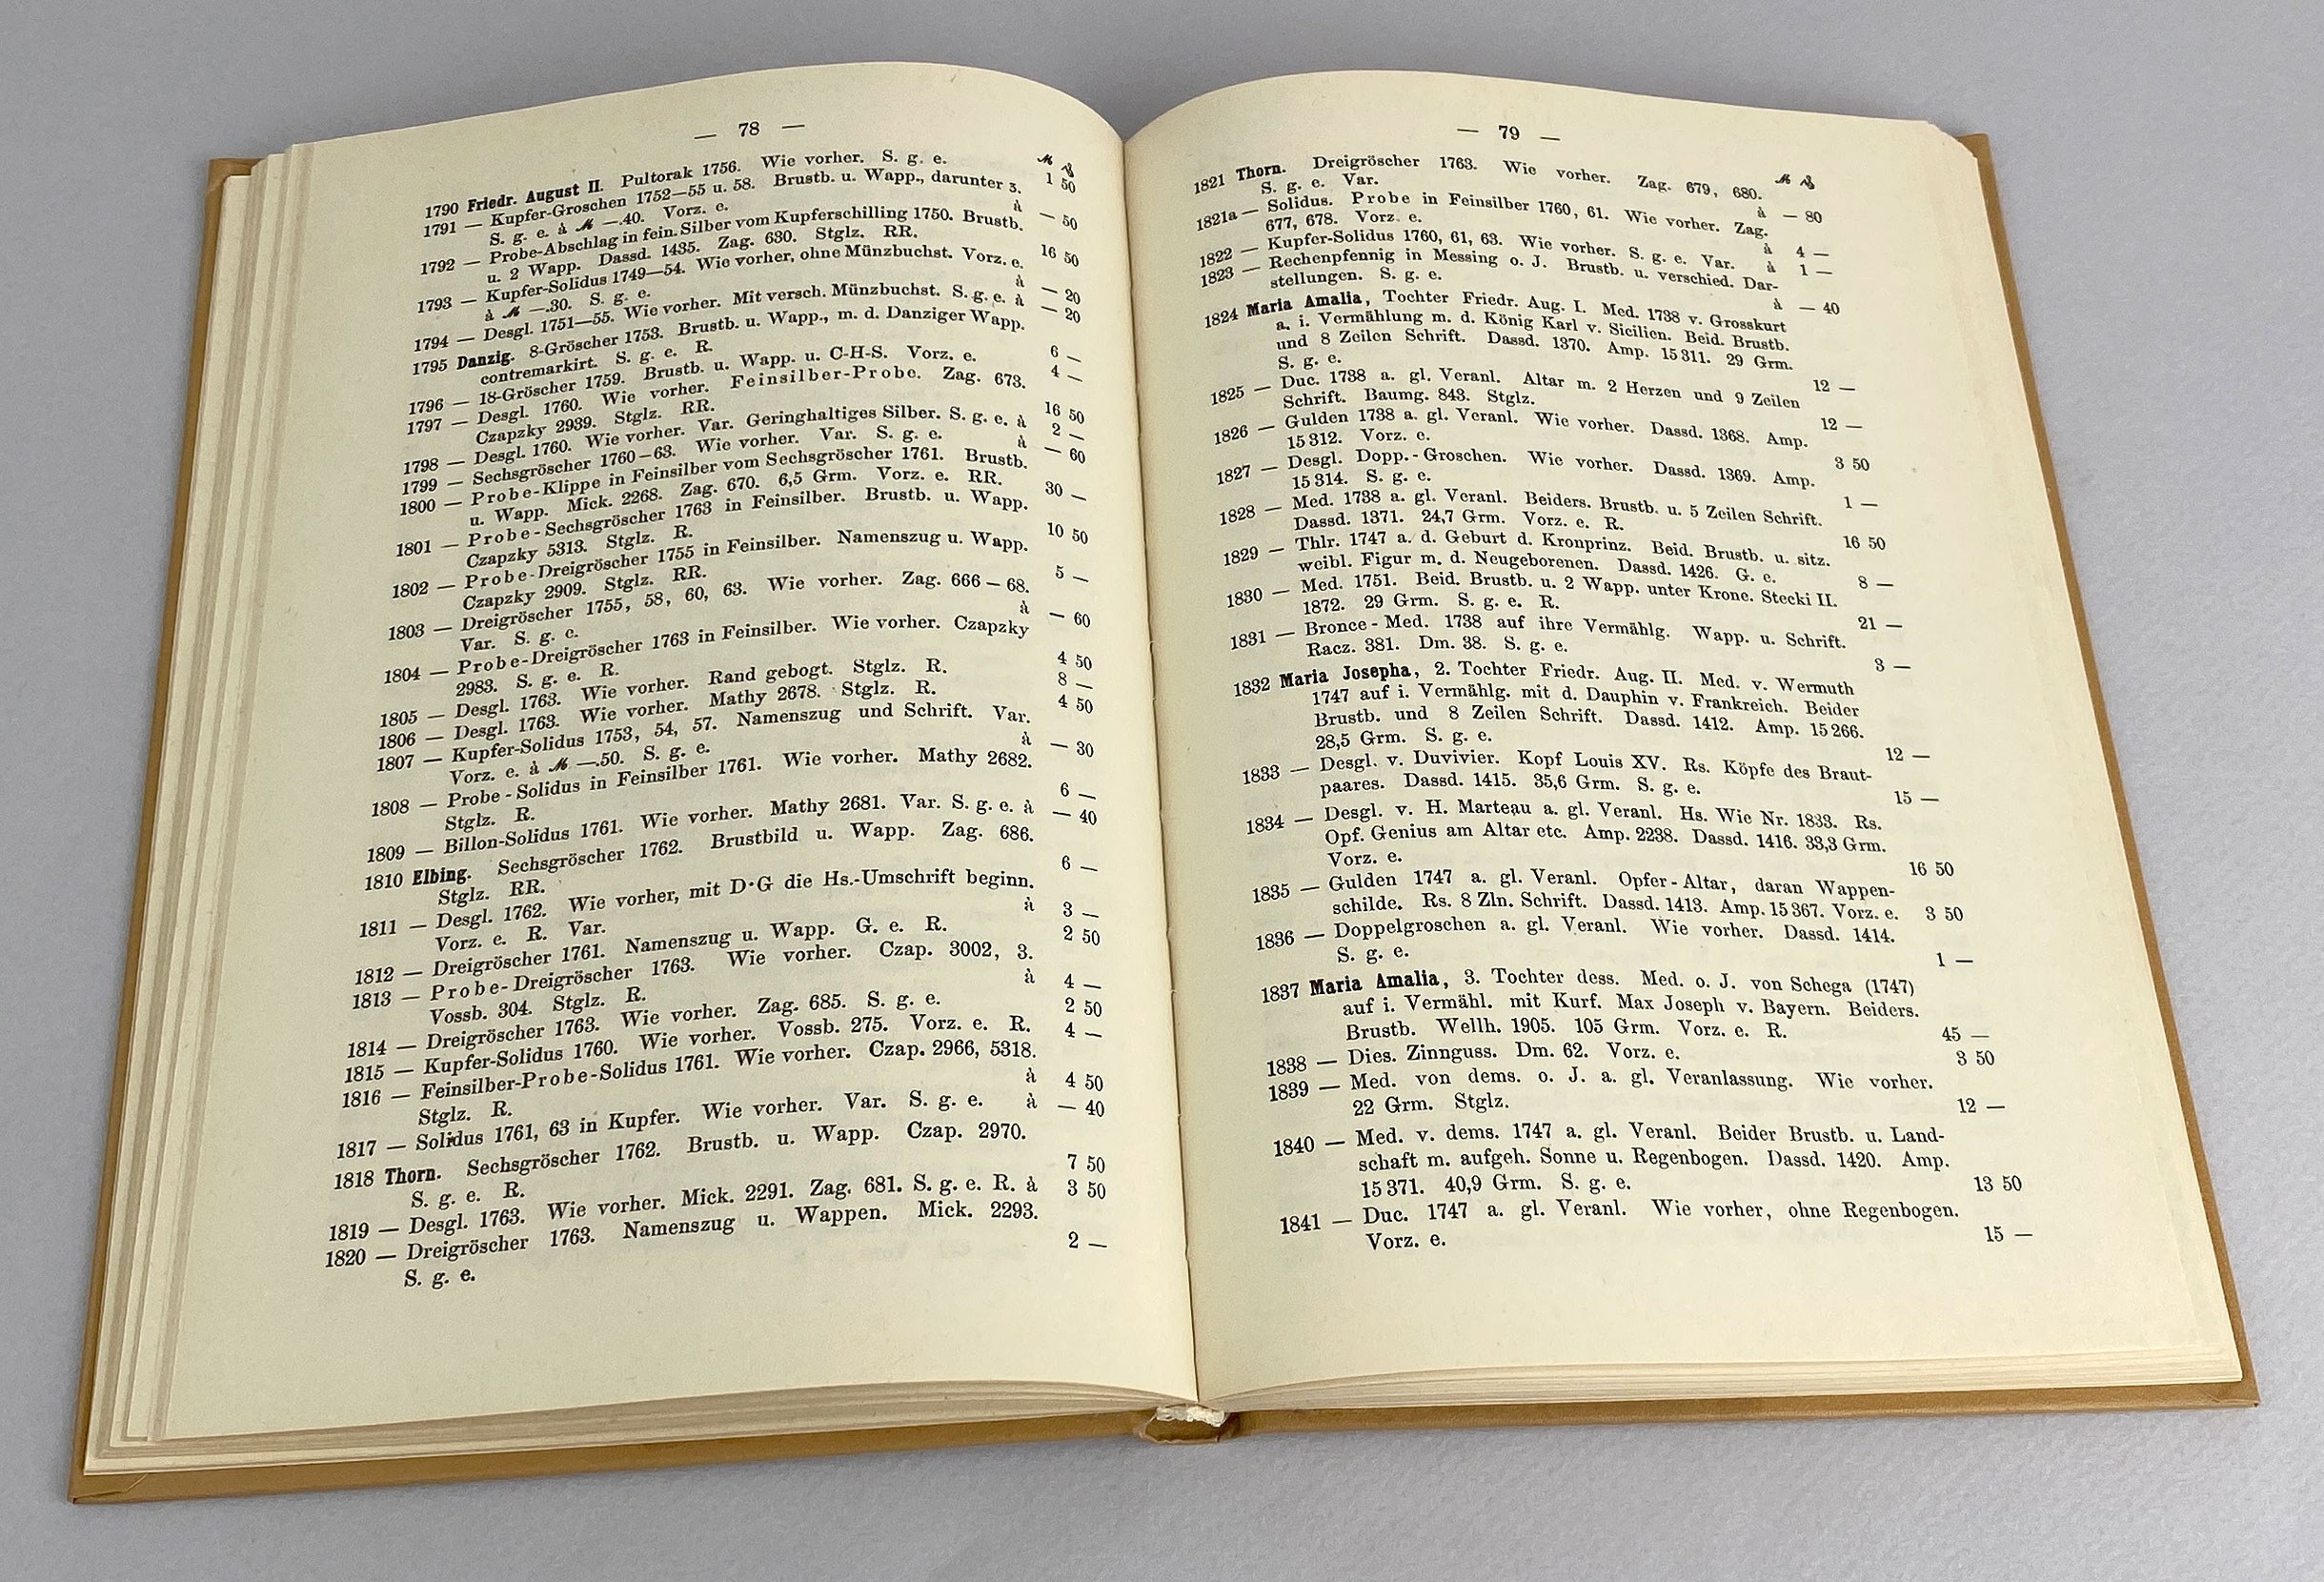 — 78 —
ℳ ₰
1790 Friedr. August II. Pultorak 1756. Wie vorher. S. g. e. 1 50
1791 — Kupfer-Groschen 1752—55 u. 58. Brustb. u. Wapp., darunter 3.
S. g. e. à ℳ —.40. Vorz. e. à — 50
1792 — Probe-Abschlag in fein. Silber vom Kupferschilling 1750. Brustb.
u. 2 Wapp. Dassd. 1435. Zag. 630. Stglz. RR. 16 50
1793 — Kupfer-Solidus 1749—54. Wie vorher, ohne Münzbuchst. Vorz. e.
à ℳ —.30. S. g. e. à — 20
1794 — Desgl. 1751—55. Wie vorher. Mit versch. Münzbuchst. S. g. e. à — 20
1795 Danzig. 8-Gröscher 1753. Brustb. u. Wapp., m. d. Danziger Wapp.
contremarkirt. S. g. e. R. 6 —
1796 — 18-Gröscher 1759. Brustb. u. Wapp. u. C-H-S. Vorz. e. 4 —
1797 — Desgl. 1760. Wie vorher. Feinsilber-Probe. Zag. 673.
Czapzky 2939. Stglz. RR. 16 50
1798 — Desgl. 1760. Wie vorher. Var. Geringhaltiges Silber. S. g. e. à 2 —
1799 — Sechsgröscher 1760—63. Wie vorher. Var. S. g. e. à — 60
1800 — Probe-Klippe in Feinsilber vom Sechsgröscher 1761. Brustb.
u. Wapp. Mick. 2268. Zag. 670. 6,5 Grm. Vorz. e. RR. 30 —
1801 — Probe-Sechsgröscher 1763 in Feinsilber. Brustb. u. Wapp.
Czapzky 5313. Stglz. R. 10 50
1802 — Probe-Dreigröscher 1755 in Feinsilber. Namenszug u. Wapp.
Czapzky 2909. Stglz. RR. 5 —
1803 — Dreigröscher 1755, 58, 60, 63. Wie vorher. Zag. 666—68.
Var. S. g. e. à — 60
1804 — Probe-Dreigröscher 1763 in Feinsilber. Wie vorher. Czapzky
2983. S. g. e. R. 4 50
1805 — Desgl. 1763. Wie vorher. Rand gebogt. Stglz. R. 8 —
1806 — Desgl. 1763. Wie vorher. Mathy 2678. Stglz. R. 4 50
1807 — Kupfer-Solidus 1753, 54, 57. Namenszug und Schrift. Var.
Vorz. e. à ℳ —.50. S. g. e. à — 30
1808 — Probe-Solidus in Feinsilber 1761. Wie vorher. Mathy 2682.
Stglz. R. 6 —
1809 — Billon-Solidus 1761. Wie vorher. Mathy 2681. Var. S. g. e. à — 40
1810 Elbing. Sechsgröscher 1762. Brustbild u. Wapp. Zag. 686.
Stglz. RR. 6 —
1811 — Desgl. 1762. Wie vorher, mit D·G die Hs.-Umschrift beginn.
Vorz. e. R. Var. à 3 —
1812 — Dreigröscher 1761. Namenszug u. Wapp. G. e. R. 2 50
1813 — Probe-Dreigröscher 1763. Wie vorher. Czap. 3002, 3.
Vossb. 304. Stglz. R. à 4 —
1814 — Dreigröscher 1763. Wie vorher. Zag. 685. S. g. e. 2 50
1815 — Kupfer-Solidus 1760. Wie vorher. Vossb. 275. Vorz. e. R. 4 —
1816 — Feinsilber-Probe-Solidus 1761. Wie vorher. Czap. 2966, 5318.
Stglz. R. à 4 50
1817 — Solidus 1761, 63 in Kupfer. Wie vorher. Var. S. g. e. à — 40
1818 Thorn. Sechsgröscher 1762. Brustb. u. Wapp. Czap. 2970.
S. g. e. R. 7 50
1819 — Desgl. 1763. Wie vorher. Mick. 2291. Zag. 681. S. g. e. R. à 3 50
1820 — Dreigröscher 1763. Namenszug u. Wappen. Mick. 2293.
S. g. e. 2 —
— 79 —
ℳ ₰
1821 Thorn. Dreigröscher 1763. Wie vorher. Zag. 679, 680.
S. g. e. Var. à — 80
1821a — Solidus. Probe in Feinsilber 1760, 61. Wie vorher. Zag.
677, 678. Vorz. e. à 4 —
1822 — Kupfer-Solidus 1760, 61, 63. Wie vorher. S. g. e. Var. à 1 —
1823 — Rechenpfennig in Messing o. J. Brustb. u. verschied. Dar-
stellungen. S. g. e. à — 40
1824 Maria Amalia, Tochter Friedr. Aug. I. Med. 1738 v. Grosskurt
a. i. Vermählung m. d. König Karl v. Sicilien. Beid. Brustb.
und 8 Zeilen Schrift. Dassd. 1370. Amp. 15311. 29 Grm.
S. g. e. 12 —
1825 — Duc. 1738 a. gl. Veranl. Altar m. 2 Herzen und 9 Zeilen
Schrift. Baumg. 843. Stglz. 12 —
1826 — Gulden 1738 a. gl. Veranl. Wie vorher. Dassd. 1368. Amp.
15312. Vorz. e. 3 50
1827 — Desgl. Dopp.-Groschen. Wie vorher. Dassd. 1369. Amp.
15314. S. g. e. 1 —
1828 — Med. 1738 a. gl. Veranl. Beiders. Brustb. u. 5 Zeilen Schrift.
Dassd. 1371. 24,7 Grm. Vorz. e. R. 16 50
1829 — Thlr. 1747 a. d. Geburt d. Kronprinz. Beid. Brustb. u. sitz.
weibl. Figur m. d. Neugeborenen. Dassd. 1426. G. e. 8 —
1830 — Med. 1751. Beid. Brustb. u. 2 Wapp. unter Krone. Stecki II.
1872. 29 Grm. S. g. e. R. 21 —
1831 — Bronce-Med. 1738 auf ihre Vermählg. Wapp. u. Schrift.
Racz. 381. Dm. 38. S. g. e. 3 —
1832 Maria Josepha, 2. Tochter Friedr. Aug. II. Med. v. Wermuth
1747 auf i. Vermählg. mit d. Dauphin v. Frankreich. Beider
Brustb. und 8 Zeilen Schrift. Dassd. 1412. Amp. 15266.
28,5 Grm. S. g. e. 12 —
1833 — Desgl. v. Duvivier. Kopf Louis XV. Rs. Köpfe des Braut-
paares. Dassd. 1415. 35,6 Grm. S. g. e. 15 —
1834 — Desgl. v. H. Marteau a. gl. Veranl. Hs. Wie Nr. 1833. Rs.
Opf. Genius am Altar etc. Amp. 2238. Dassd. 1416. 33,3 Grm.
Vorz. e. 16 50
1835 — Gulden 1747 a. gl. Veranl. Opfer-Altar, daran Wappen-
schilde. Rs. 8 Zln. Schrift. Dassd. 1413. Amp. 15367. Vorz. e. 3 50
1836 — Doppelgroschen a. gl. Veranl. Wie vorher. Dassd. 1414.
S. g. e. 1 —
1837 Maria Amalia, 3. Tochter dess. Med. o. J. von Schega (1747)
auf i. Vermähl. mit Kurf. Max Joseph v. Bayern. Beiders.
Brustb. Wellh. 1905. 105 Grm. Vorz. e. R. 45 —
1838 — Dies. Zinnguss. Dm. 62. Vorz. e. 3 50
1839 — Med. von dems. o. J. a. gl. Veranlassung. Wie vorher.
22 Grm. Stglz. 12 —
1840 — Med. v. dems. 1747 a. gl. Veranl. Beider Brustb. u. Land-
schaft m. aufgeh. Sonne u. Regenbogen. Dassd. 1420. Amp.
15371. 40,9 Grm. S. g. e. 13 50
1841 — Duc. 1747 a. gl. Veranl. Wie vorher, ohne Regenbogen.
Vorz. e. 15 —